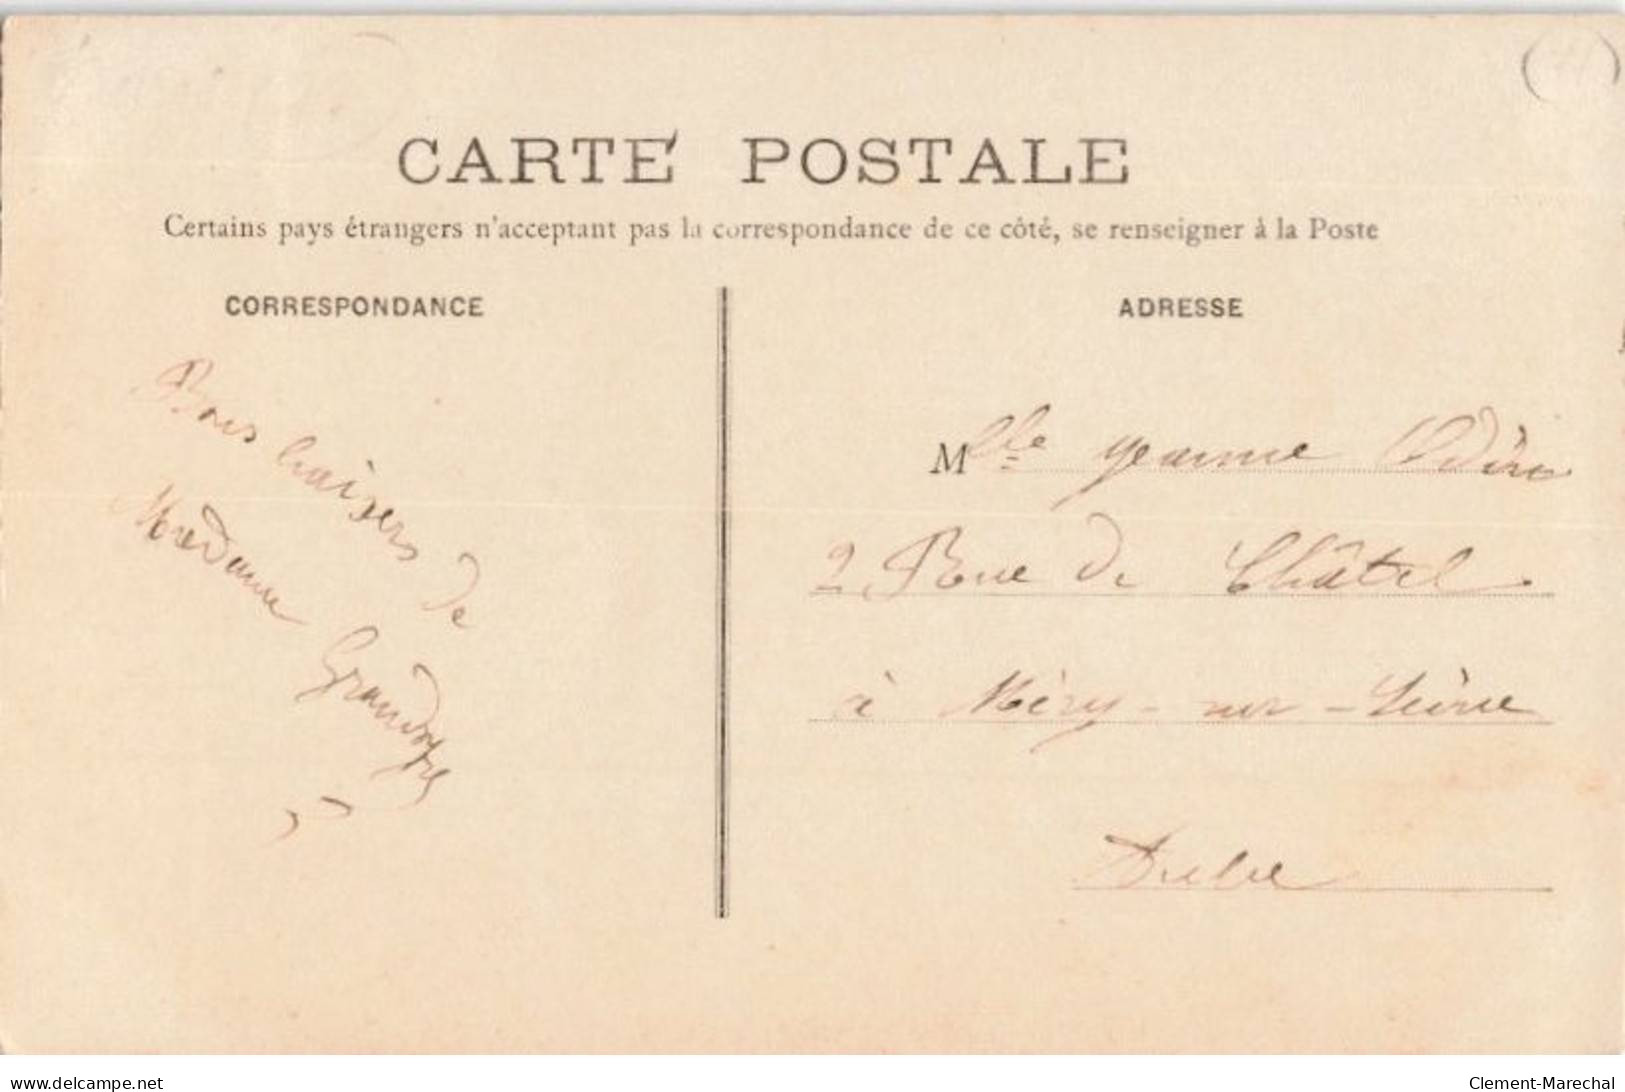 CARTE POSTALE
Certains pays étrangers n'acceptant pas la correspondance de ce côté, se renseigner à la Poste
CORRESPONDANCE
Bons baisers de
Madame
ADRESSE
Mlle Jeanne Odin
2 Rue de Châtel
à Méry-sur-Seine
Aube
www.delcampe.net
Clement-Marechal